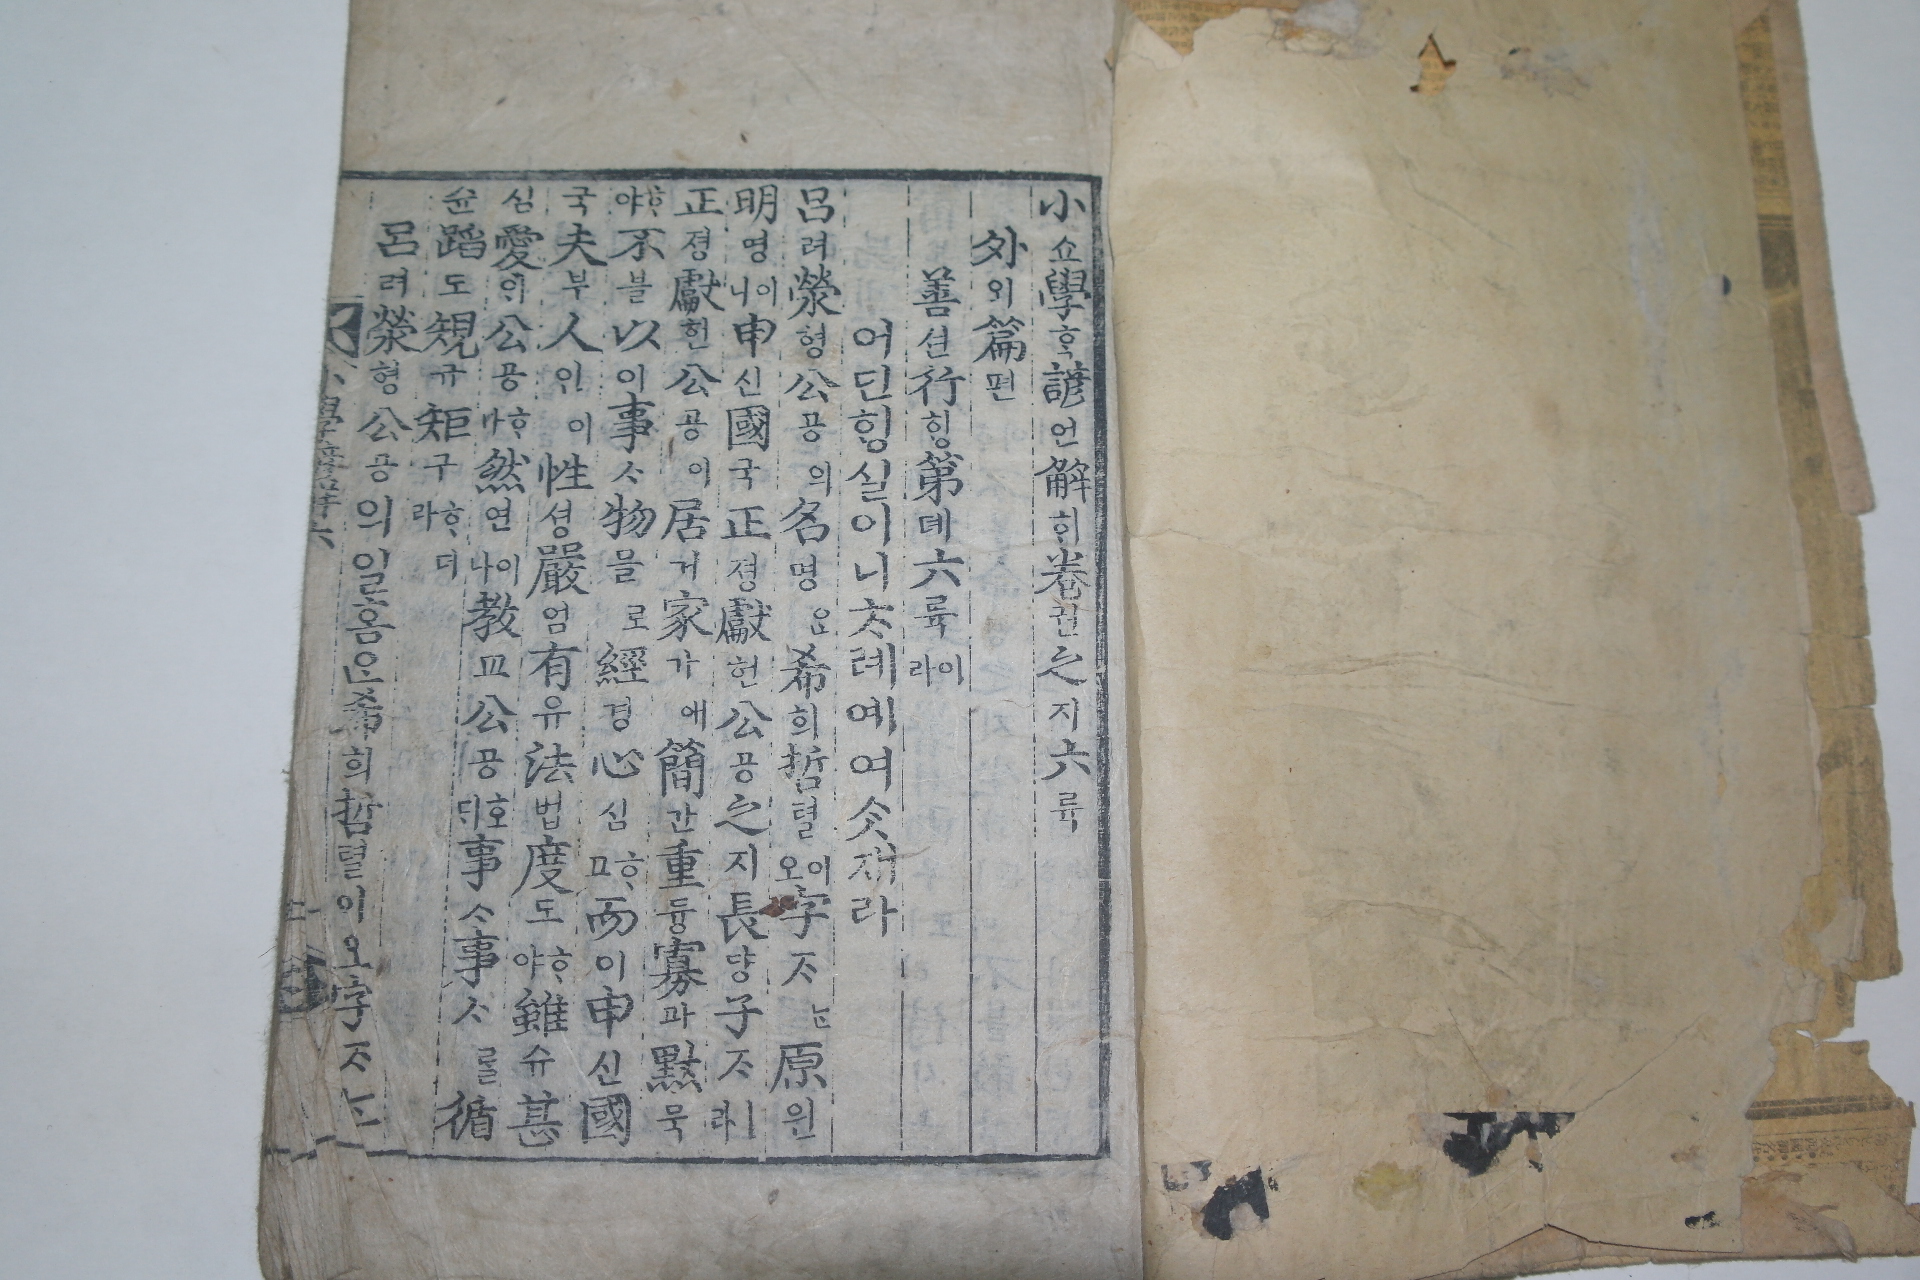 小쇼學ᄒᆞᆨ諺언解ᄒᆡ卷권之지六륙
外외篇편
善션行ᄒᆡᆼ第뎨六륙이라
어딘ᄒᆡᆼ실이니ᄎᆞ례예여ᄉᆞᆺ재라
呂려滎형公공의名명은希희哲텰이오字ᄌᆞᄂᆞᆫ原원
明명이니申신國국正졍獻헌公공之지長댱子ᄌᆞㅣ라
正졍獻헌公공이居거家가애簡간重듕寡과默묵
ᄒᆞ야不블以이事ᄉᆞ物믈로經경心심ᄒᆞ고而이申신國
국夫부人인이性셩嚴엄有유法법度도ᄒᆞ야雖슈甚
심愛ᄋᆡ公공ᄒᆞ나然연이나教교公공호ᄃᆡ事ᄉᆞ事ᄉᆞ를循
슌蹈도規규矩구ᄒᆞ더라
呂려滎형公공의일홈은希희哲텰이오字ᄌᆞᄂᆞᆫ
小學諺解六